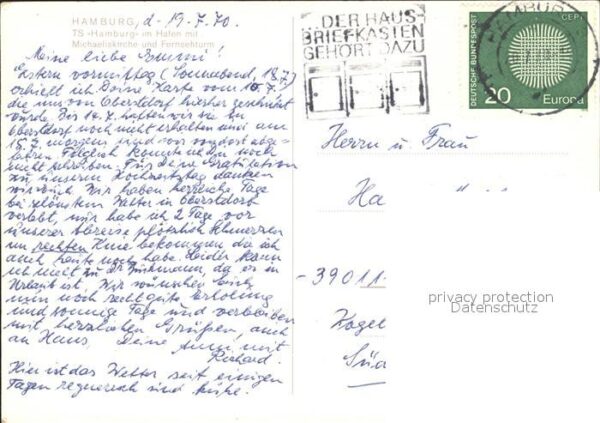 HAMBURG, d. 19.7.70.
TS »Hamburg« im Hafen mit
Michaeliskirche und Fernsehturm
Meine liebe Emmi!
Gestern vormittag (Sonnabend, 18.7.)
erhielt ich Deine Karte vom 10.7.
die uns von Oberstdorf hierher geschickt
wurde. Bis 14.7. hatten wir sie in
Oberstdorf noch nicht erhalten und am
15.7. morgens sind wir von dort abge-
fahren. Folglich konnte ich Dir noch
nicht schreiben. Für Deine Gratulation
zu unserem Hochzeitstag danken
wir Euch. Wir haben herrliche Tage
bei schönstem Wetter in Oberstdorf
verlebt, nur habe ich 2 Tage vor
unserer Abreise plötzlich Schmerzen
im rechten Knie bekommen, die ich
auch heute noch habe. Leider kann
ich nicht zu Dr. da er in
Urlaub ist. Wir wünschen Euch
nun noch recht gute Erholung
und sonnige Tage und verbleiben
mit herzlichen Grüßen, auch
an Hans, Deine Anni mit
Richard.
Hier ist das Wetter seit einigen
Tagen regnerisch und kühl.
...DER HAUS-
BRIEFKASTEN
GEHÖRT DAZU
HAMBURG
DEUTSCHE BUNDESPOST
CEPT
20 Europa
Herrn u. Frau
Ha
-39011-
privacy protection
Datenschutz
Süd